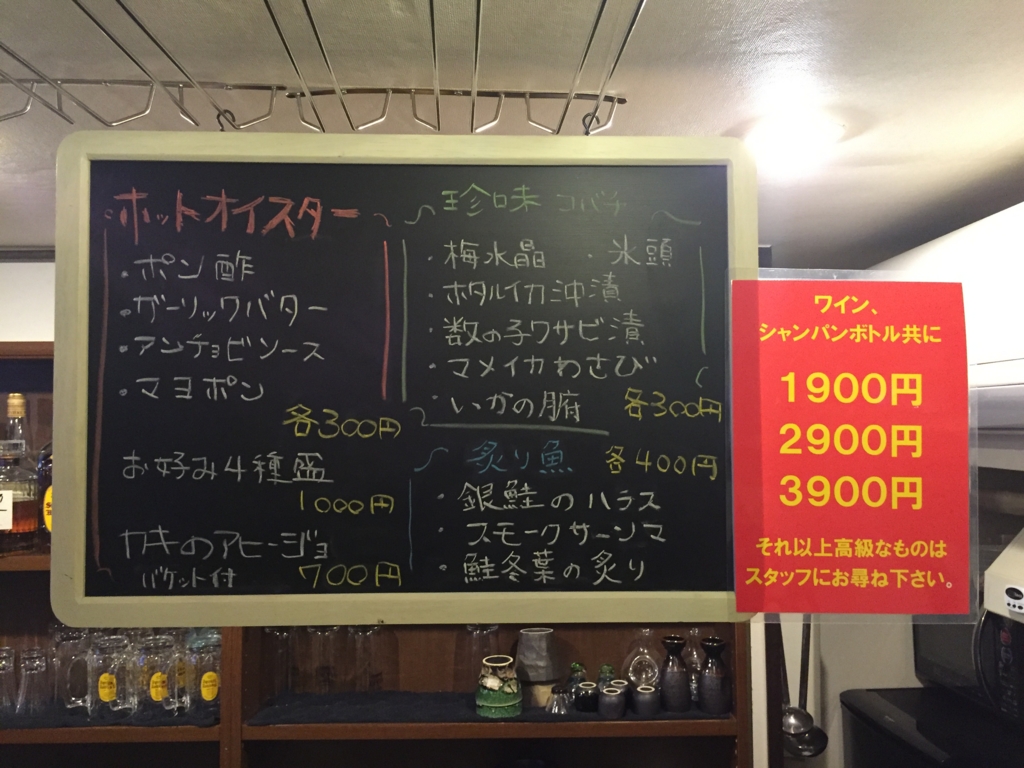 ホットオイスター
・ポン酢
・ガーリックバター
・アンチョビソース
・マヨポン
各300円
お好み4種盛
1000円
カキのアヒージョ
バケット付 700円
珍味 コバチ
・梅水晶 ・氷頭
・ホタルイカ沖漬
・数の子ワサビ漬
・マメイカわさび
・いかの腑 各300円
炙り魚 各400円
・銀鮭のハラス
・スモークサーンマ
・鮭冬葉の炙り
ワイン、
シャンパンボトル共に
1900円
2900円
3900円
それ以上高級なものは
スタッフにお尋ね下さい。